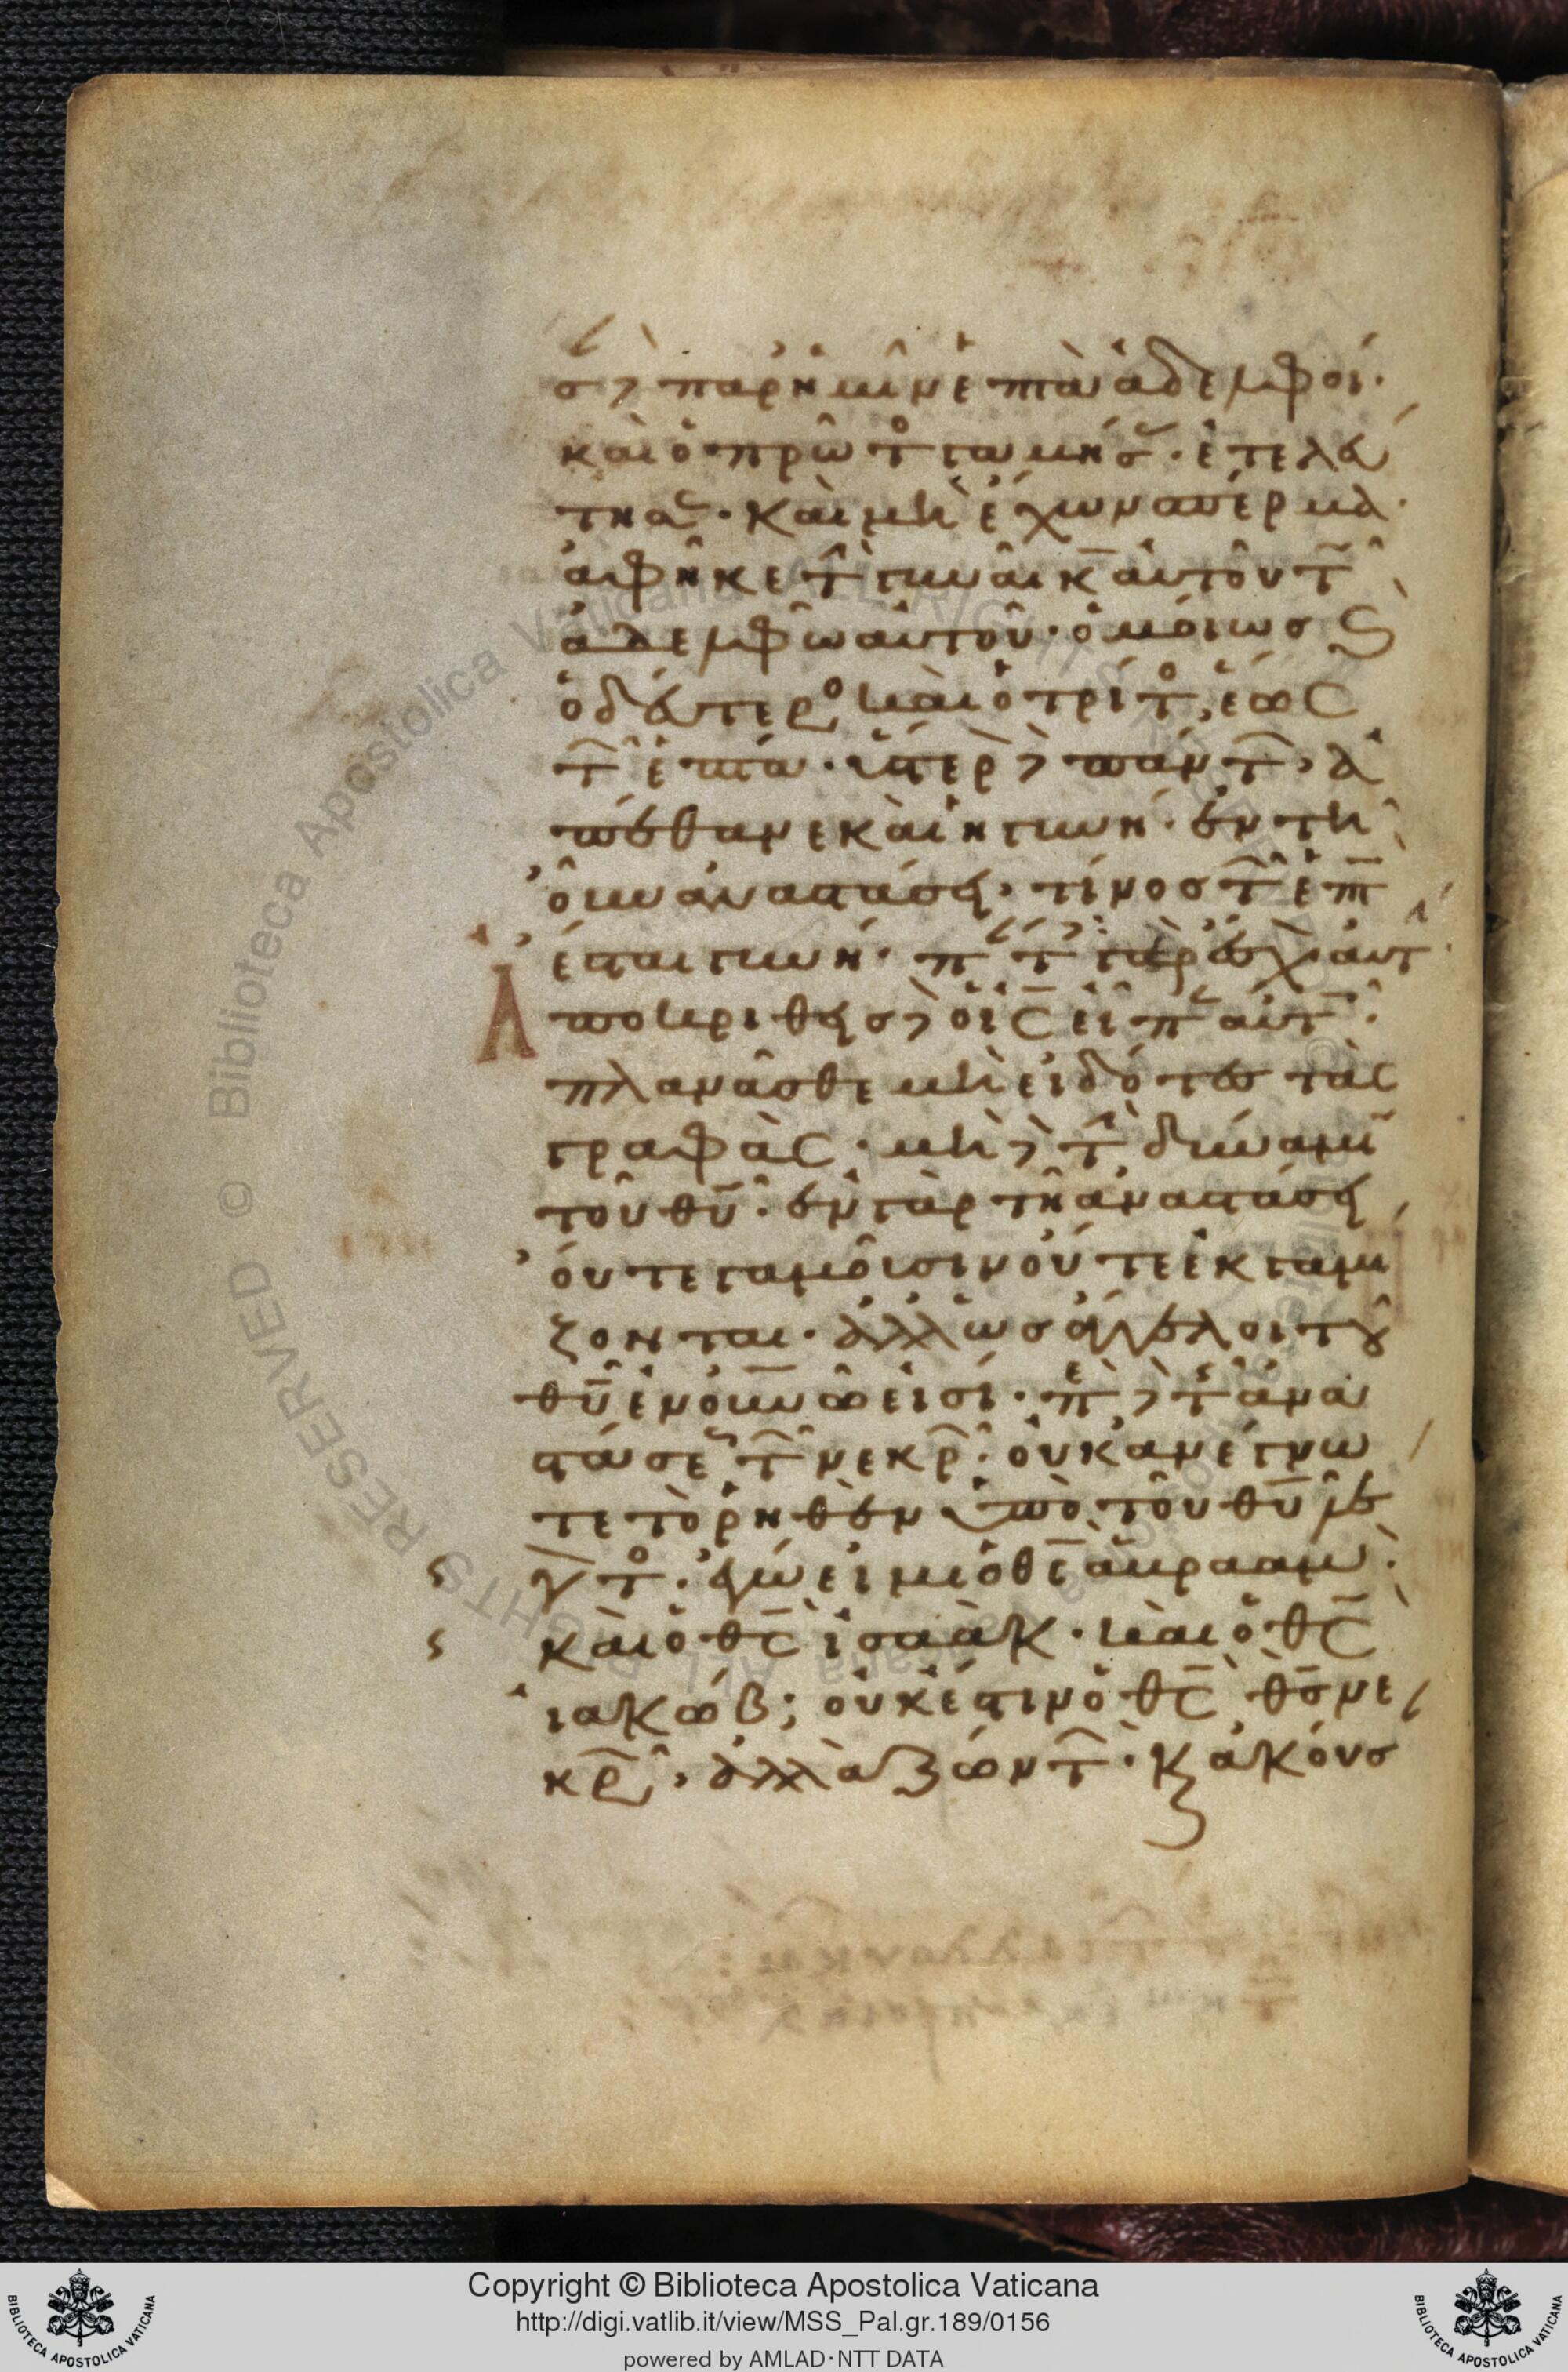 σ δὲ παρ ἡμῖν ἑπτὰ ἀδελφοί·
καὶ ὁ πρῶτος γαμήσας· ἐτελεύ
τησε· καὶ μὴ ἔχων σπέρμα·
ἀφῆκε τὴν γυναῖκα αὐτοῦ τῶ
ἀδελφῶ αὐτοῦ· ὁμοίως καὶ
ὁ δεύτερος καὶ ὁ τρίτος, ἕως
τῶν ἑπτά· ὕστερον δὲ πάντων, ἀ
πέθανε καὶ ἡ γυνή· ἐν τῆ
οὖν ἀναστάσει, τίνος τῶν ἑπτὰ
ἔσται γυνή· πάντες γὰρ ἔσχον αὐτήν·
Ἀποκριθεὶς δὲ ὁ ις εἶπεν αὐτοῖς·
πλανᾶσθε μὴ εἰδότες τὰς
γραφὰς· μὴ δὲ τὴν δύναμιν
τοῦ θυ· ἐν γὰρ τῆ ἀναστάσει
οὔτε γαμοῦσιν οὔτε ἐκγαμί
ζονται· ἀλλ ὡς ἄγγελοι τοῦ
θυ ἐν οὐνω εἰσί· περὶ δὲ τῆς ἀνα
στάσεως τῶν νεκρῶν· οὐκ ἀνέγνω
τε τὸ ῥηθὲν ὑπὸ τοῦ θυ λέ
γοντος· ἐγώ εἰμι ὁ θς ἀβραάμ·
καὶ ὁ θς ἰσαὰκ· καὶ ὁ θς
ἰακώβ; οὐκ ἔστιν ὁ θς θς νε
κρῶν, ἀλλὰ ζώντων· κ ἀκούσ
Copyright © Biblioteca Apostolica Vaticana
http://digi.vatlib.it/view/MSS_Pal.gr.189/0156
powered by AMLAD·NTT DATA